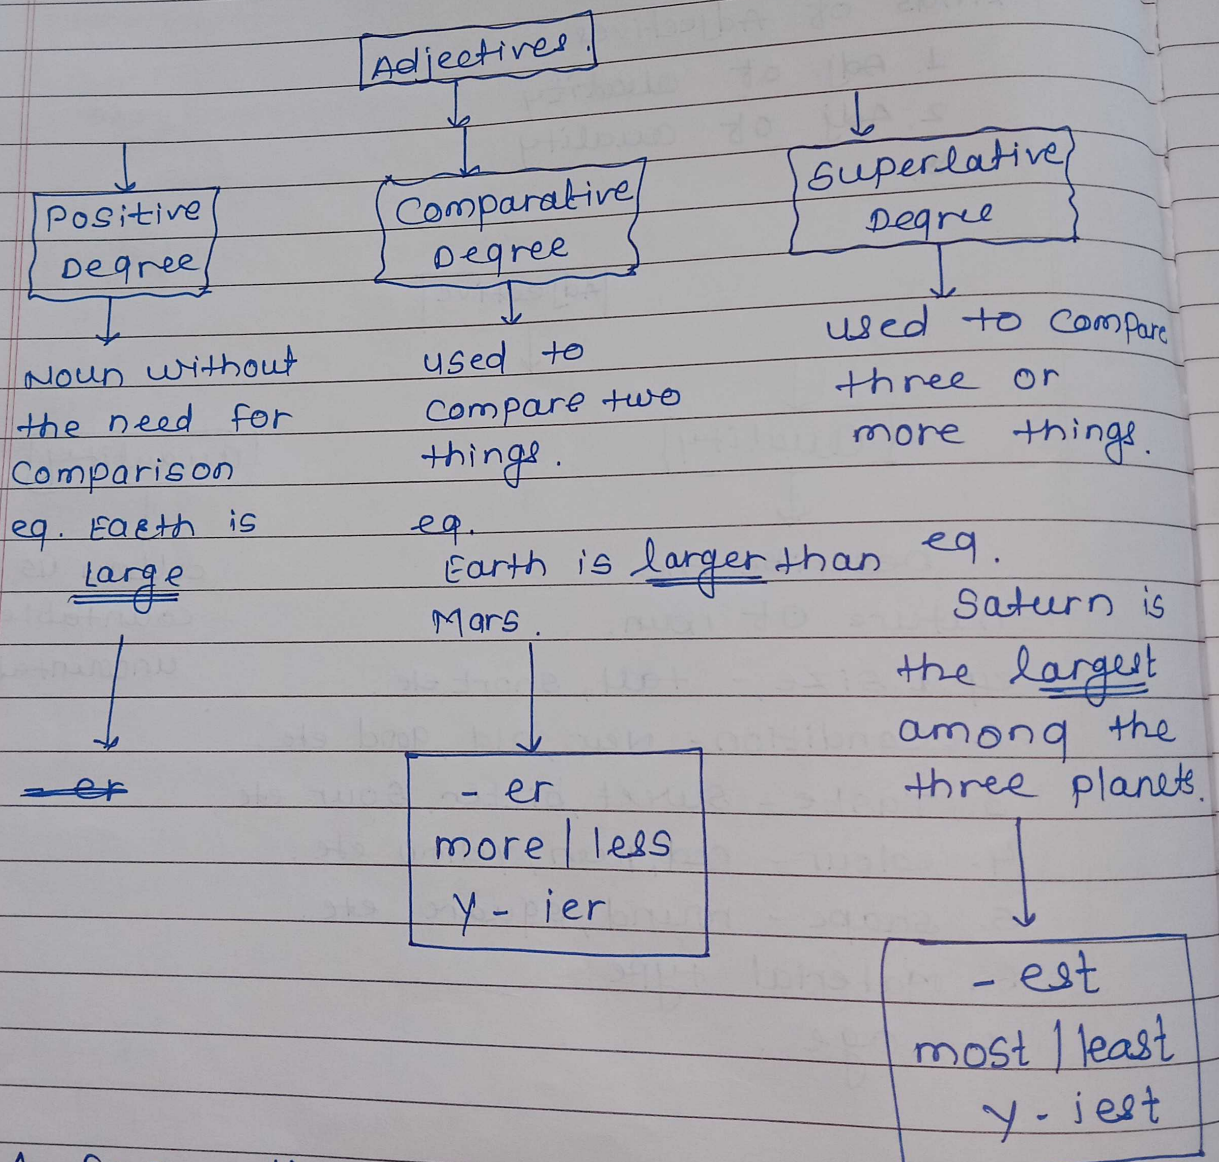 Adjectives.
Positive
Degree
Noun without
the need for
comparison
eg. Earth is
Large
- er
Comparative
Degree
used to
compare two
things.
eg.
Earth is larger than
Mars.
- er
more | less
y - ier
Superlative
Degree
used to compare
three or
more things.
eg.
Saturn is
the largest
among the
three planets.
- est
most | least
y - iest